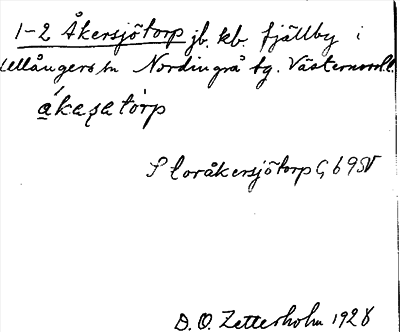 1-2 Åkersjötorp jb. kb. fjällby i
Ullångers sn Nordingrå tg. Västernorrl.
Storåkersjötorp G 69 SV
D. O. Zetterholm 1928